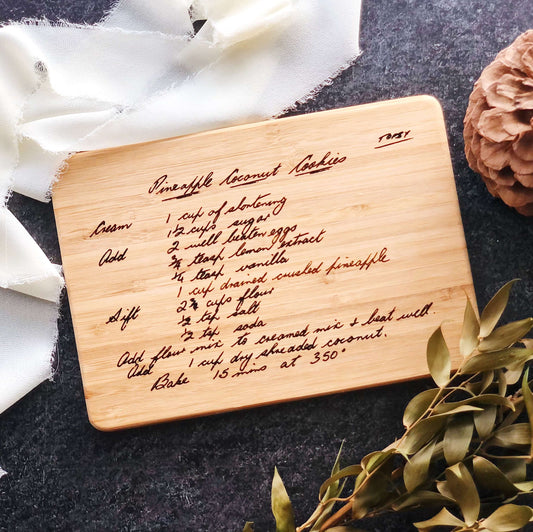 TOPSY
Pineapple Coconut Cookies
Cream 1 cup of shortening
1 1/2 cups sugar
Add 2 well beaten eggs
3/4 teasp lemon extract
1/4 teasp vanilla
1 cup drained crushed pineapple
Sift 2 3/4 cups flour
1/2 tsp salt
1/2 tsp soda
Add flour mix to creamed mix & beat well.
Add 1 cup dry shreaded coconut.
Bake 15 mins at 350°